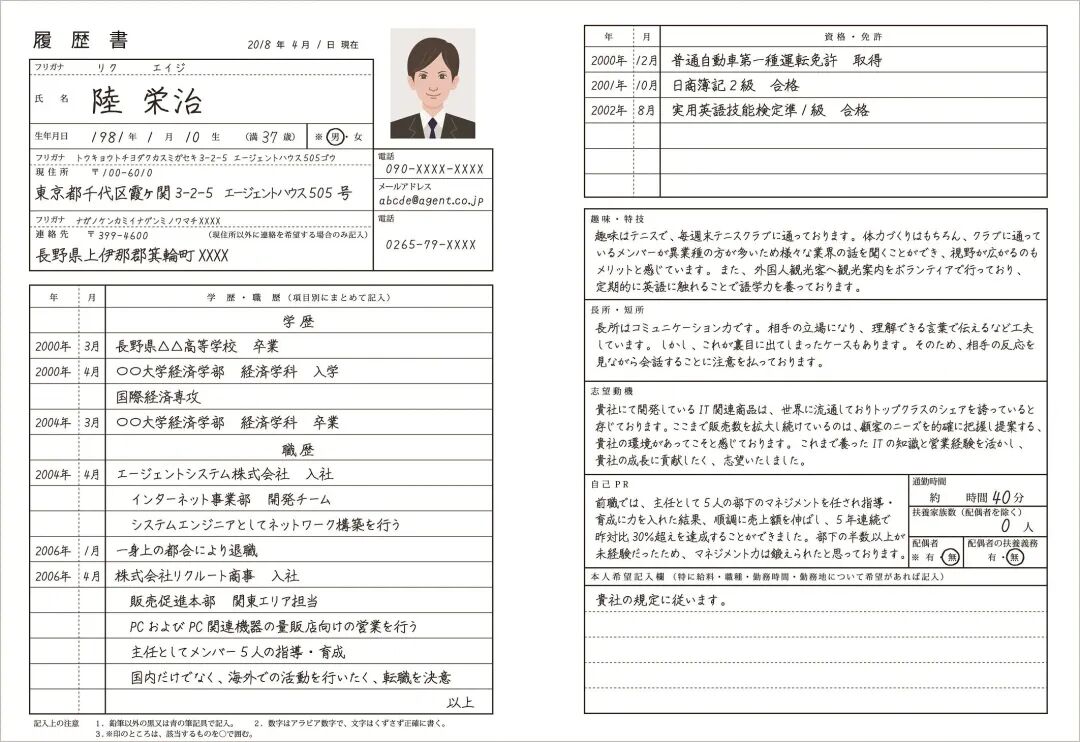 履歴書
2018 年 4 月 1 日 現在
フリガナ リク エイジ
氏 名 陸 栄治
生年月日 1981 年 1 月 10 生 (満 37 歳) ※ 男・女
フリガナ トウキョウトチヨダクカスミガセキ3-2-5 エージェントハウス505ゴウ
現住所 〒100-6010
東京都千代区霞ヶ関 3-2-5 エージェントハウス 505 号
電話
090-XXXX-XXXX
メールアドレス
abcde@agent.co.jp
フリガナ ナガノケンカミイナゲンミノワマチXXXX
連絡先 〒399-4600 (現住所以外に連絡を希望する場合のみ記入)
長野県上伊那郡箕輪町 XXXX
電話
0265-79-XXXX
年 月 学 歴・職 歴 (項目別にまとめて記入)
学歴
2000年 3月 長野県△△高等学校 卒業
2000年 4月 〇〇大学経済学部 経済学科 入学
国際経済専攻
2004年 3月 〇〇大学経済学部 経済学科 卒業
職歴
2004年 4月 エージェントシステム株式会社 入社
インターネット事業部 開発チーム
システムエンジニアとしてネットワーク構築を行う
2006年 1月 一身上の都会により退職
2006年 4月 株式会社リクルート商事 入社
販売促進本部 関東エリア担当
PC および PC 関連機器の量販店向けの営業を行う
主任としてメンバー 5 人の指導・育成
国内だけでなく、海外での活動を行いたく、転職を決意
以上
記入上の注意 1. 鉛筆以外の黒又は青の筆記具で記入。 2. 数字はアラビア数字で、文字はくずさず正確に書く。
3. ※印のところは、該当するものを〇で囲む。
年 月 資格・免許
2000年 12月 普通自動車第一種運転免許 取得
2001年 10月 日商簿記 2 級 合格
2002年 8月 実用英語技能検定準 1 級 合格
趣味・特技
趣味はテニスで、毎週末テニスクラブに通っております。体力づくりはもちろん、クラブに通って
いるメンバーが異業種の方が多いため様々な業界の話を聞くことができ、視野が広がるのも
メリットと感じています。また、外国人観光客へ観光案内をボランティアで行っており、
定期的に英語に触れることで語学力を養っております。
長所・短所
長所はコミュニケーション力です。相手の立場になり、理解できる言葉で伝えるなど工夫
しています。しかし、これが裏目に出てしまったケースもあります。そのため、相手の反応を
見ながら会話することに注意を払っております。
志望動機
貴社にて開発している IT 関連商品は、世界に流通しておりトップクラスのシェアを誇っていると
存じております。ここまで販売数を拡大し続けているのは、顧客のニーズを的確に把握し提案する、
貴社の環境があってこそと感じております。これまで養った IT の知識と営業経験を活かし、
貴社の成長に貢献したく、志望いたしました。
自己PR
前職では、主任として 5 人の部下のマネジメントを任され指導・
育成に力を入れた結果、順調に売上額を伸ばし、5 年連続で
昨対比 30%超えを達成することができました。部下の半数以上が
未経験だったため、マネジメント力は鍛えられたと思っております。
通勤時間
約 時間 40 分
扶養家族数 (配偶者を除く)
0 人
配偶者
※ 有・無
配偶者の扶養義務
有・無
本人希望記入欄 (特に給料・職種・勤務時間・勤務地について希望があれば記入)
貴社の規定に従います。